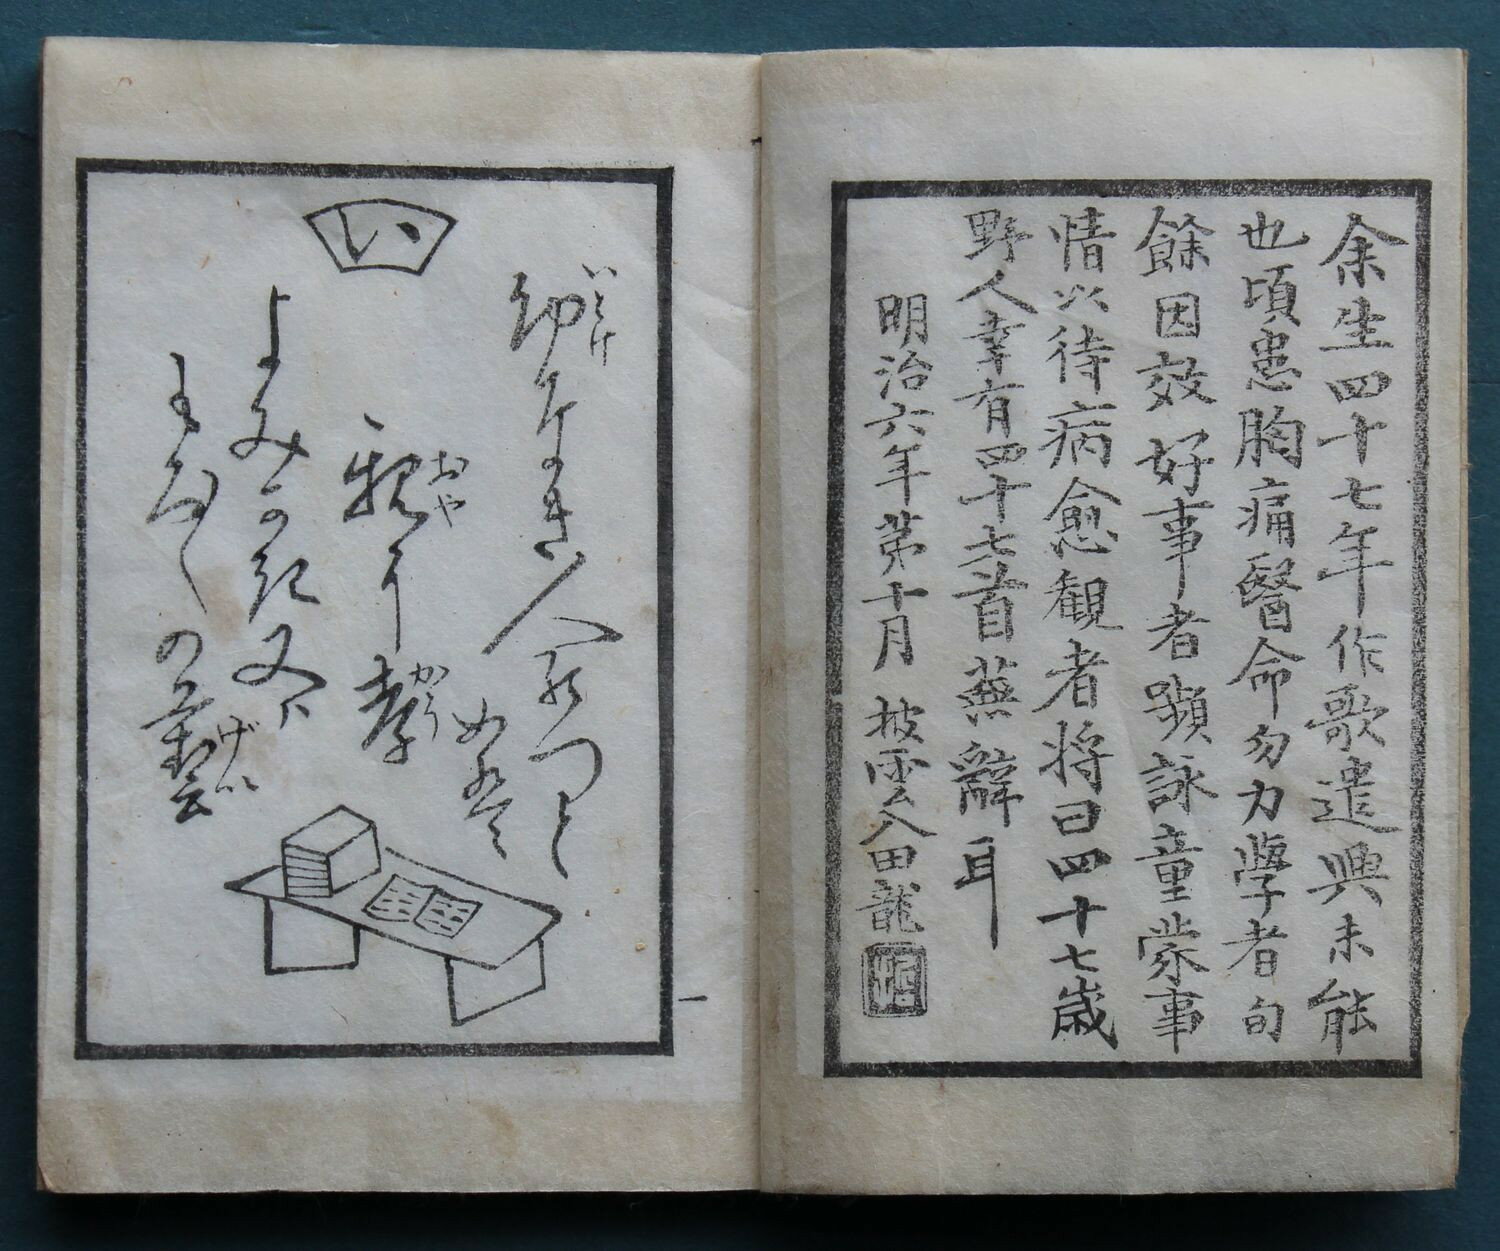 余生四十七年作歌遣興未能
也頃患胸痛醫命勿力學者句
餘因效好事者顰詠童蒙事
情以待病愈観者将曰四十七歳
野人幸有四十七首蕪辭耳
明治六年第十月 披雲八田龍
い
いとけ
幼けなき人のつとめは
おや かう
親に孝
よみかき又は
げい
の藝
一